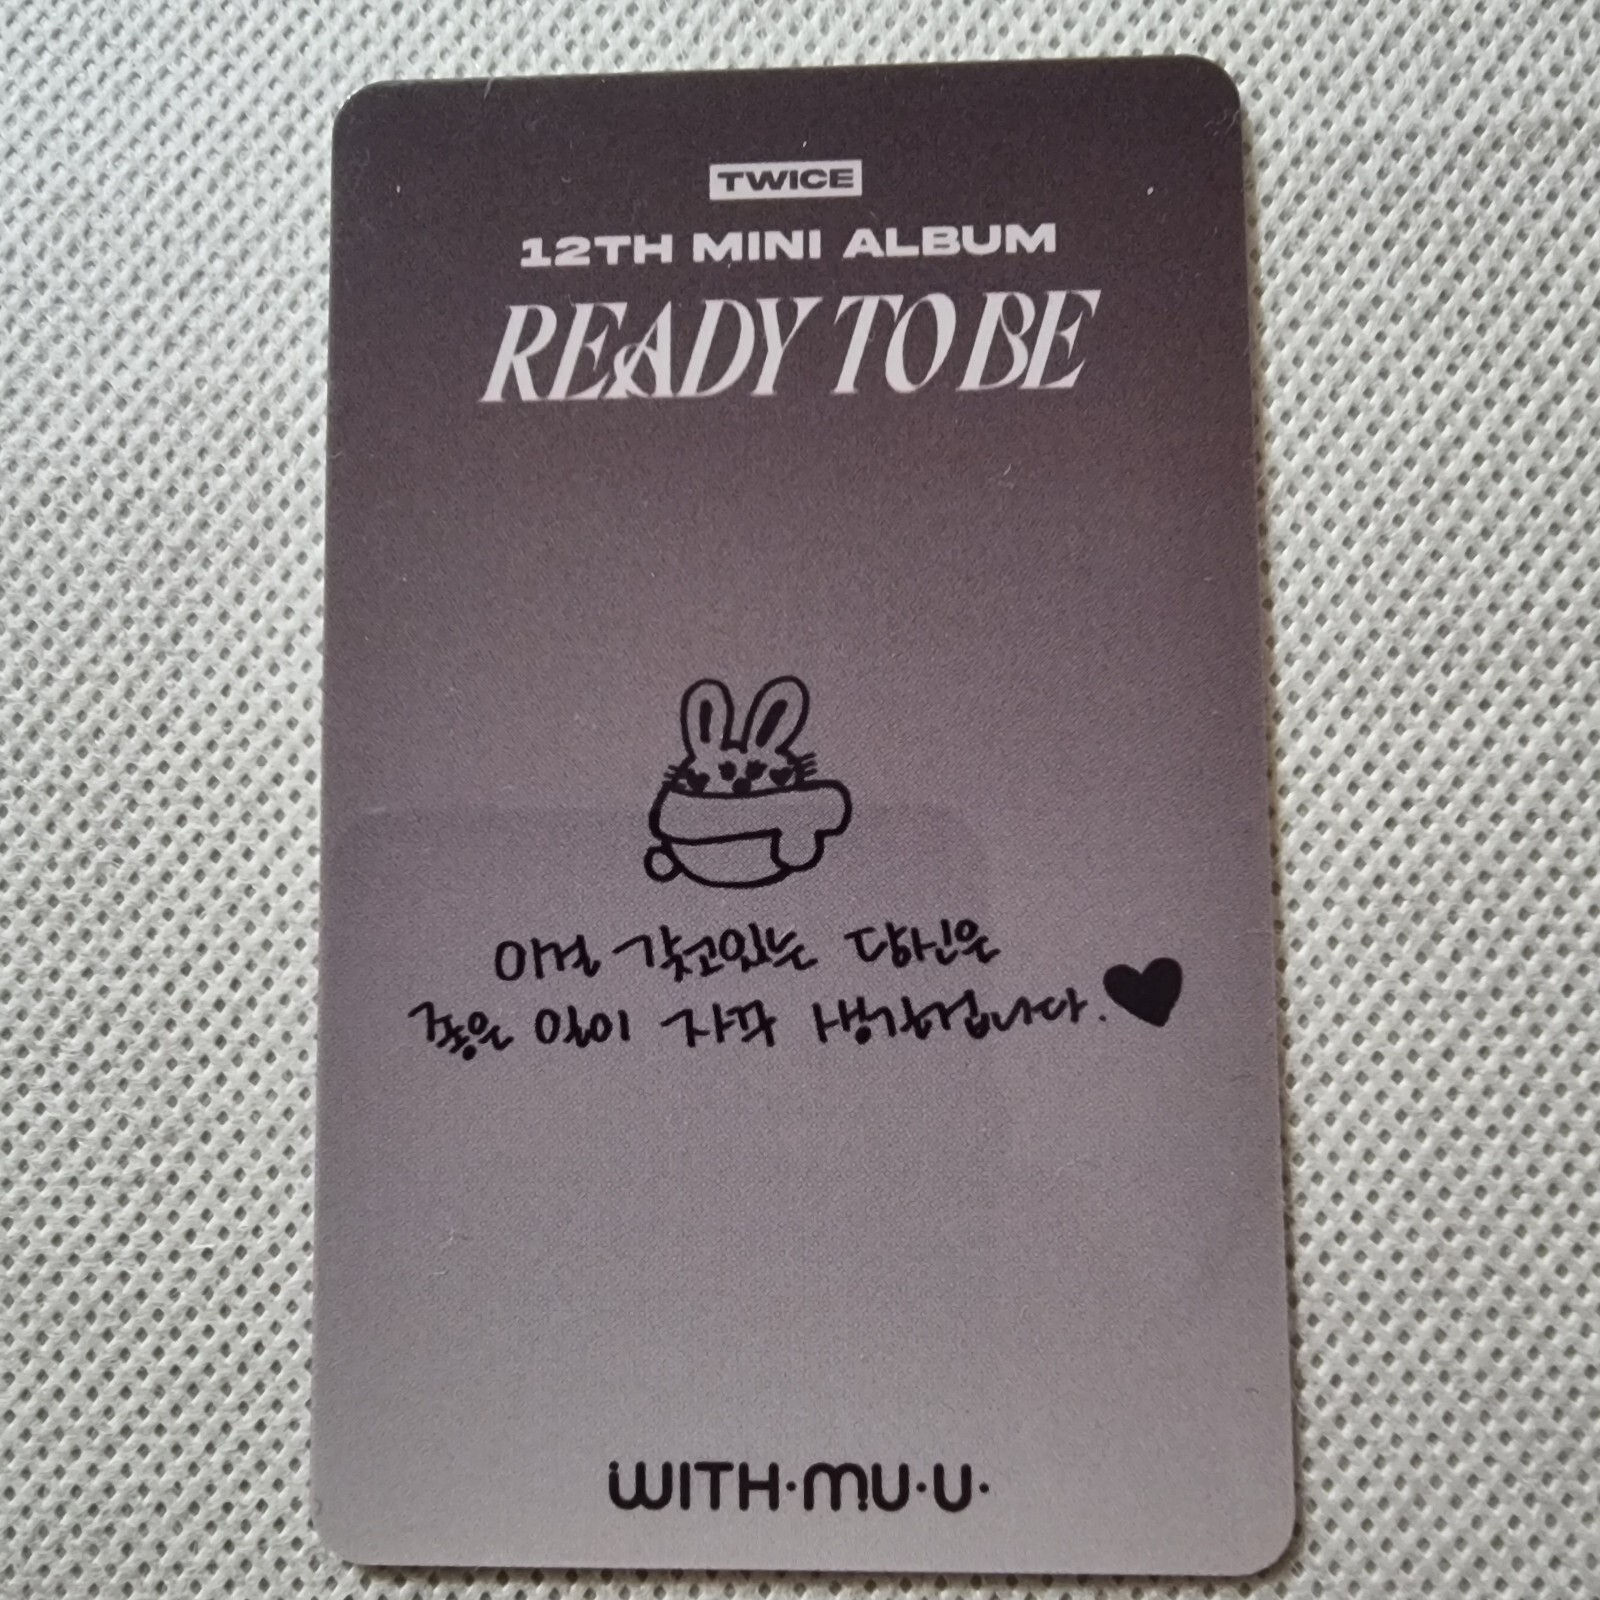 TWICE
12TH MINI ALBUM
READY TO BE
이걸 갖고있는 당신은
좋은 일이 자꾸 생겨버립니다.
WITH·MU·U·